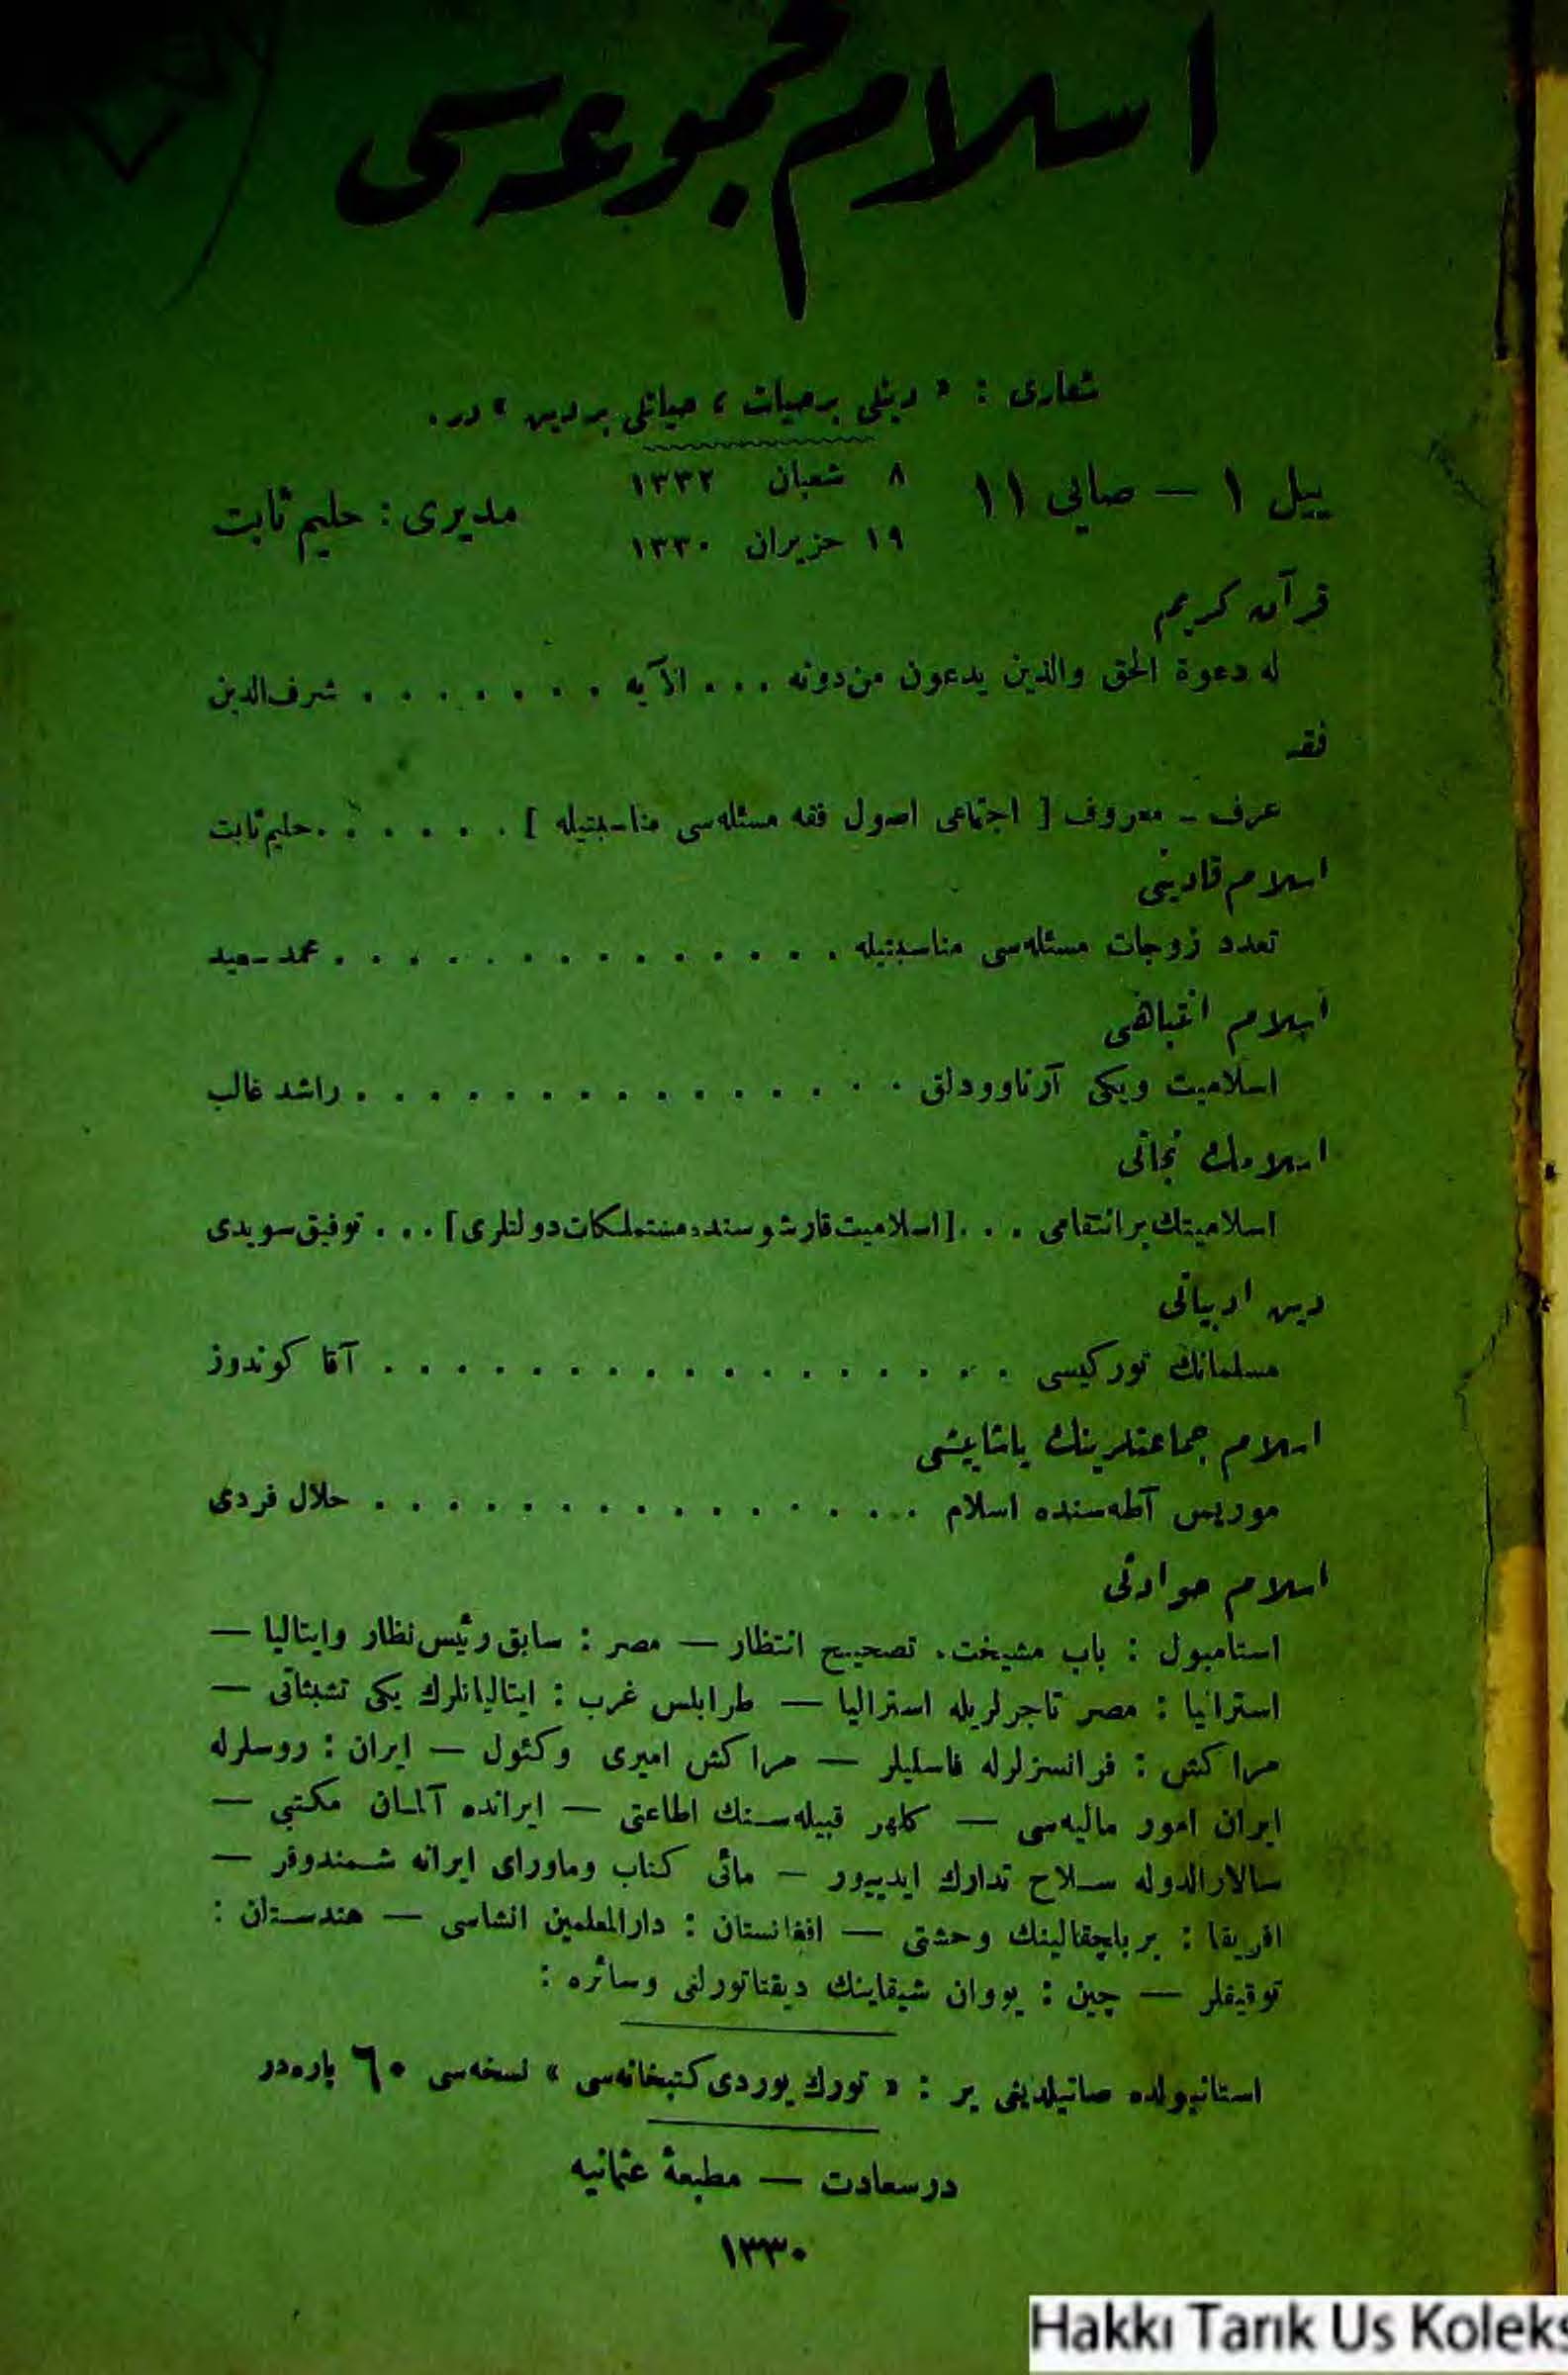 اسلام مجموعه‌سی
شعاری : « دینلی بر حیات ، حیاتلی بر دین » در .
ییل ١ — صایی ١١
٨ شعبان ١٣٣٢
١٩ حزیران ١٣٣٠
مدیری : حلیم ثابت
قرآن کریم
له دعوة الحق والذین یدعون من دونه . . . الآیه . . . . . . . شرف‌الدین
فقه
عرف - معروف [ اجتماعی اصول فقه مسئله‌سی مناسبتیله ] . . . . . . حلیم ثابت
اسلام قادینی
تعدد زوجات مسئله‌سی مناسبتیله . . . . . . . . . . . . . . محمد سعید
اسلام انتباهی
اسلامیت ویکی آرناوودلق . . . . . . . . . . . . . . . راشد غالب
اسلامك نجاتی
اسلامیتك بر انتقامی . . . [ اسلامیت قارشوسنده مستملکات دولتلری ] . . . توفیق سویدی
دین ادبیاتی
مسلمانك تورکیسی . . . . . . . . . . . . . . . . . . آقا کوندوز
اسلام جماعتلرینك یاشاییشی
موریس آطه‌سنده اسلام . . . . . . . . . . . . . . . حلال فردی
اسلام حوادثی
استامبول : باب مشیخت، تصحیح انتظار — مصر : سابق رئیس نظار وایتالیا —
استرانیا : مصر تاجرلریله استرالیا — طرابلس غرب : ایتالیانلرك یکی تشبثاتی —
مراکش : فرانسزلرله فاسلیلر — مراکش امیری وکئول — ایران : روسلرله
ایران امور مالیه‌سی — کلهر قبیله‌سنك اطاعتی — ایرانده آلمان مکتبی —
سالارالدوله سلاح تدارك ایدییور — مائی کتاب وماورای ایرانه شمندوفر —
افریقا : بر باچقالینك وحشتی — افغانستان : دارالمعلمین انشاسی — هندستان :
توقیفلر — چین : یووان شیقاینك دیقتاتورلغی وسائره :
استانبولده صاتیلدیغی یر : « تورك یوردی کتبخانه‌سی » نسخه‌سی ٦٠ پاره‌در
درسعادت — مطبعهٔ عثمانیه
١٣٣٠
Hakkı Tarık Us Koleks